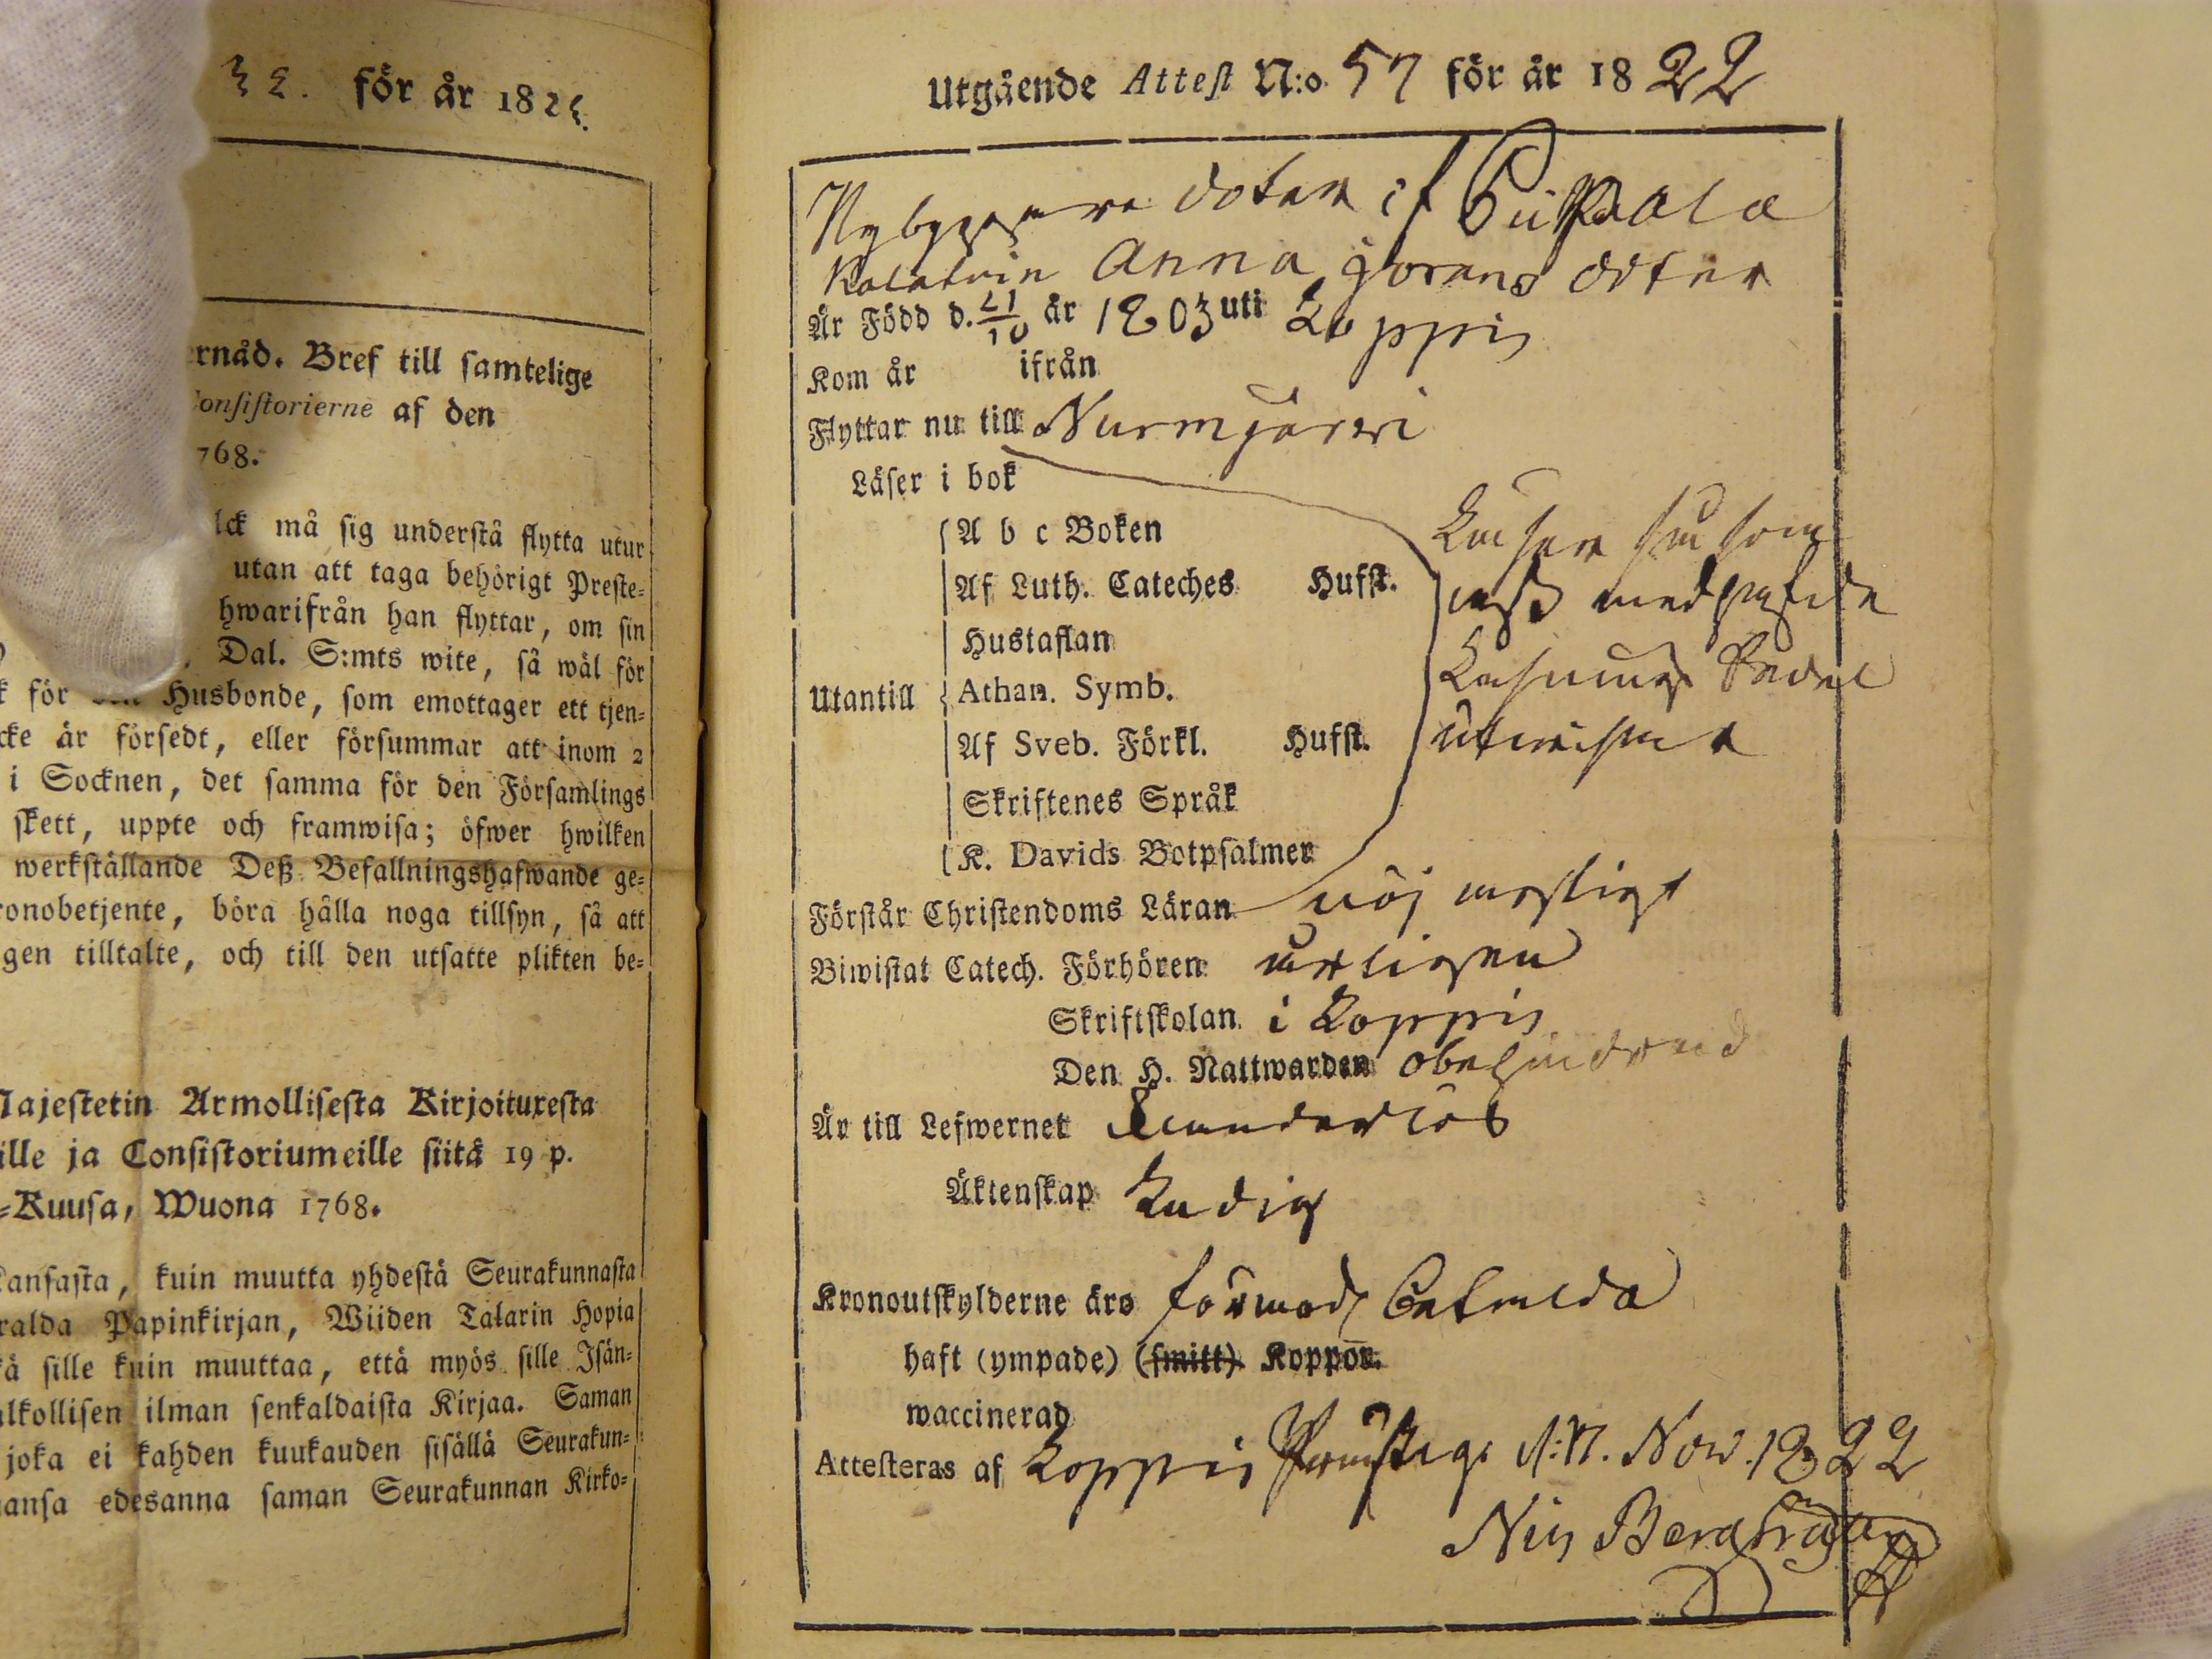 för år 182
ernåd. Bref till samtelige
onsistorierne af den
768.
lck må sig understå flytta utur
utan att taga behörigt Preste-
hwarifrån han flyttar, om sin
Dal. S:mts wite, så wäl för
för Husbonde, som emottager ett tjen-
cke är försedt, eller försummar att inom 2
i Socknen, det samma för den Församlings
skett, uppte och framwisa; öfwer hwilken
werkställande Deß Befallningshafwande ge-
ronobetjente, böra hålla noga tillsyn, så att
gen tilltalte, och till den utsatte plikten be-
Majestetin Armollisesta Kirjoituxesta
ille ja Consistoriumeille siitä 19 p.
-Kuusa, Wuona 1768.
ansasta, kuin muutta yhdestä Seurakunnasta
ralda Papinkirjan, Wiiden Talarin Hopia
ä sille kuin muuttaa, että myös sille Isän-
lkollisen ilman senkaldaista Kirjaa. Saman
joka ei kahden kuukauden sisällä Seurakun-
ansa edesanna saman Seurakunnan Kirko-
Utgående Attest N:o 57 för år 1822
Nybyggare doter if
Anna Görans doter
Är Född d. 21/10 år 1803 uti Loppis
Kom år ifrån
Flyttar nu till Nurmijärwi
Läser i bok
A b c Boken
Af Luth. Cateches Hufst.
Hustaflan
Utantill Athan. Symb.
Af Sveb. Förkl. Hufst.
Skriftenes Språk
K. Davids Botpsalmer
Läser som
medhafde
Läsnings Sedel
utwisar
Förstår Christendoms Läran nöjagtigt
Biwistat Catech. Förhören årligen
Skriftskolan i Loppis
Den H. Nattwarden obehindrad
Är till Lefwernet klanderlös
Äktenskap Ledig
Kronoutskylderne äro förmod. betalda
haft (ympade) (smitt) Koppor.
waccinerad
Attesteras af Loppis Prästeg. d. Nov. 1822
Nils Bergh